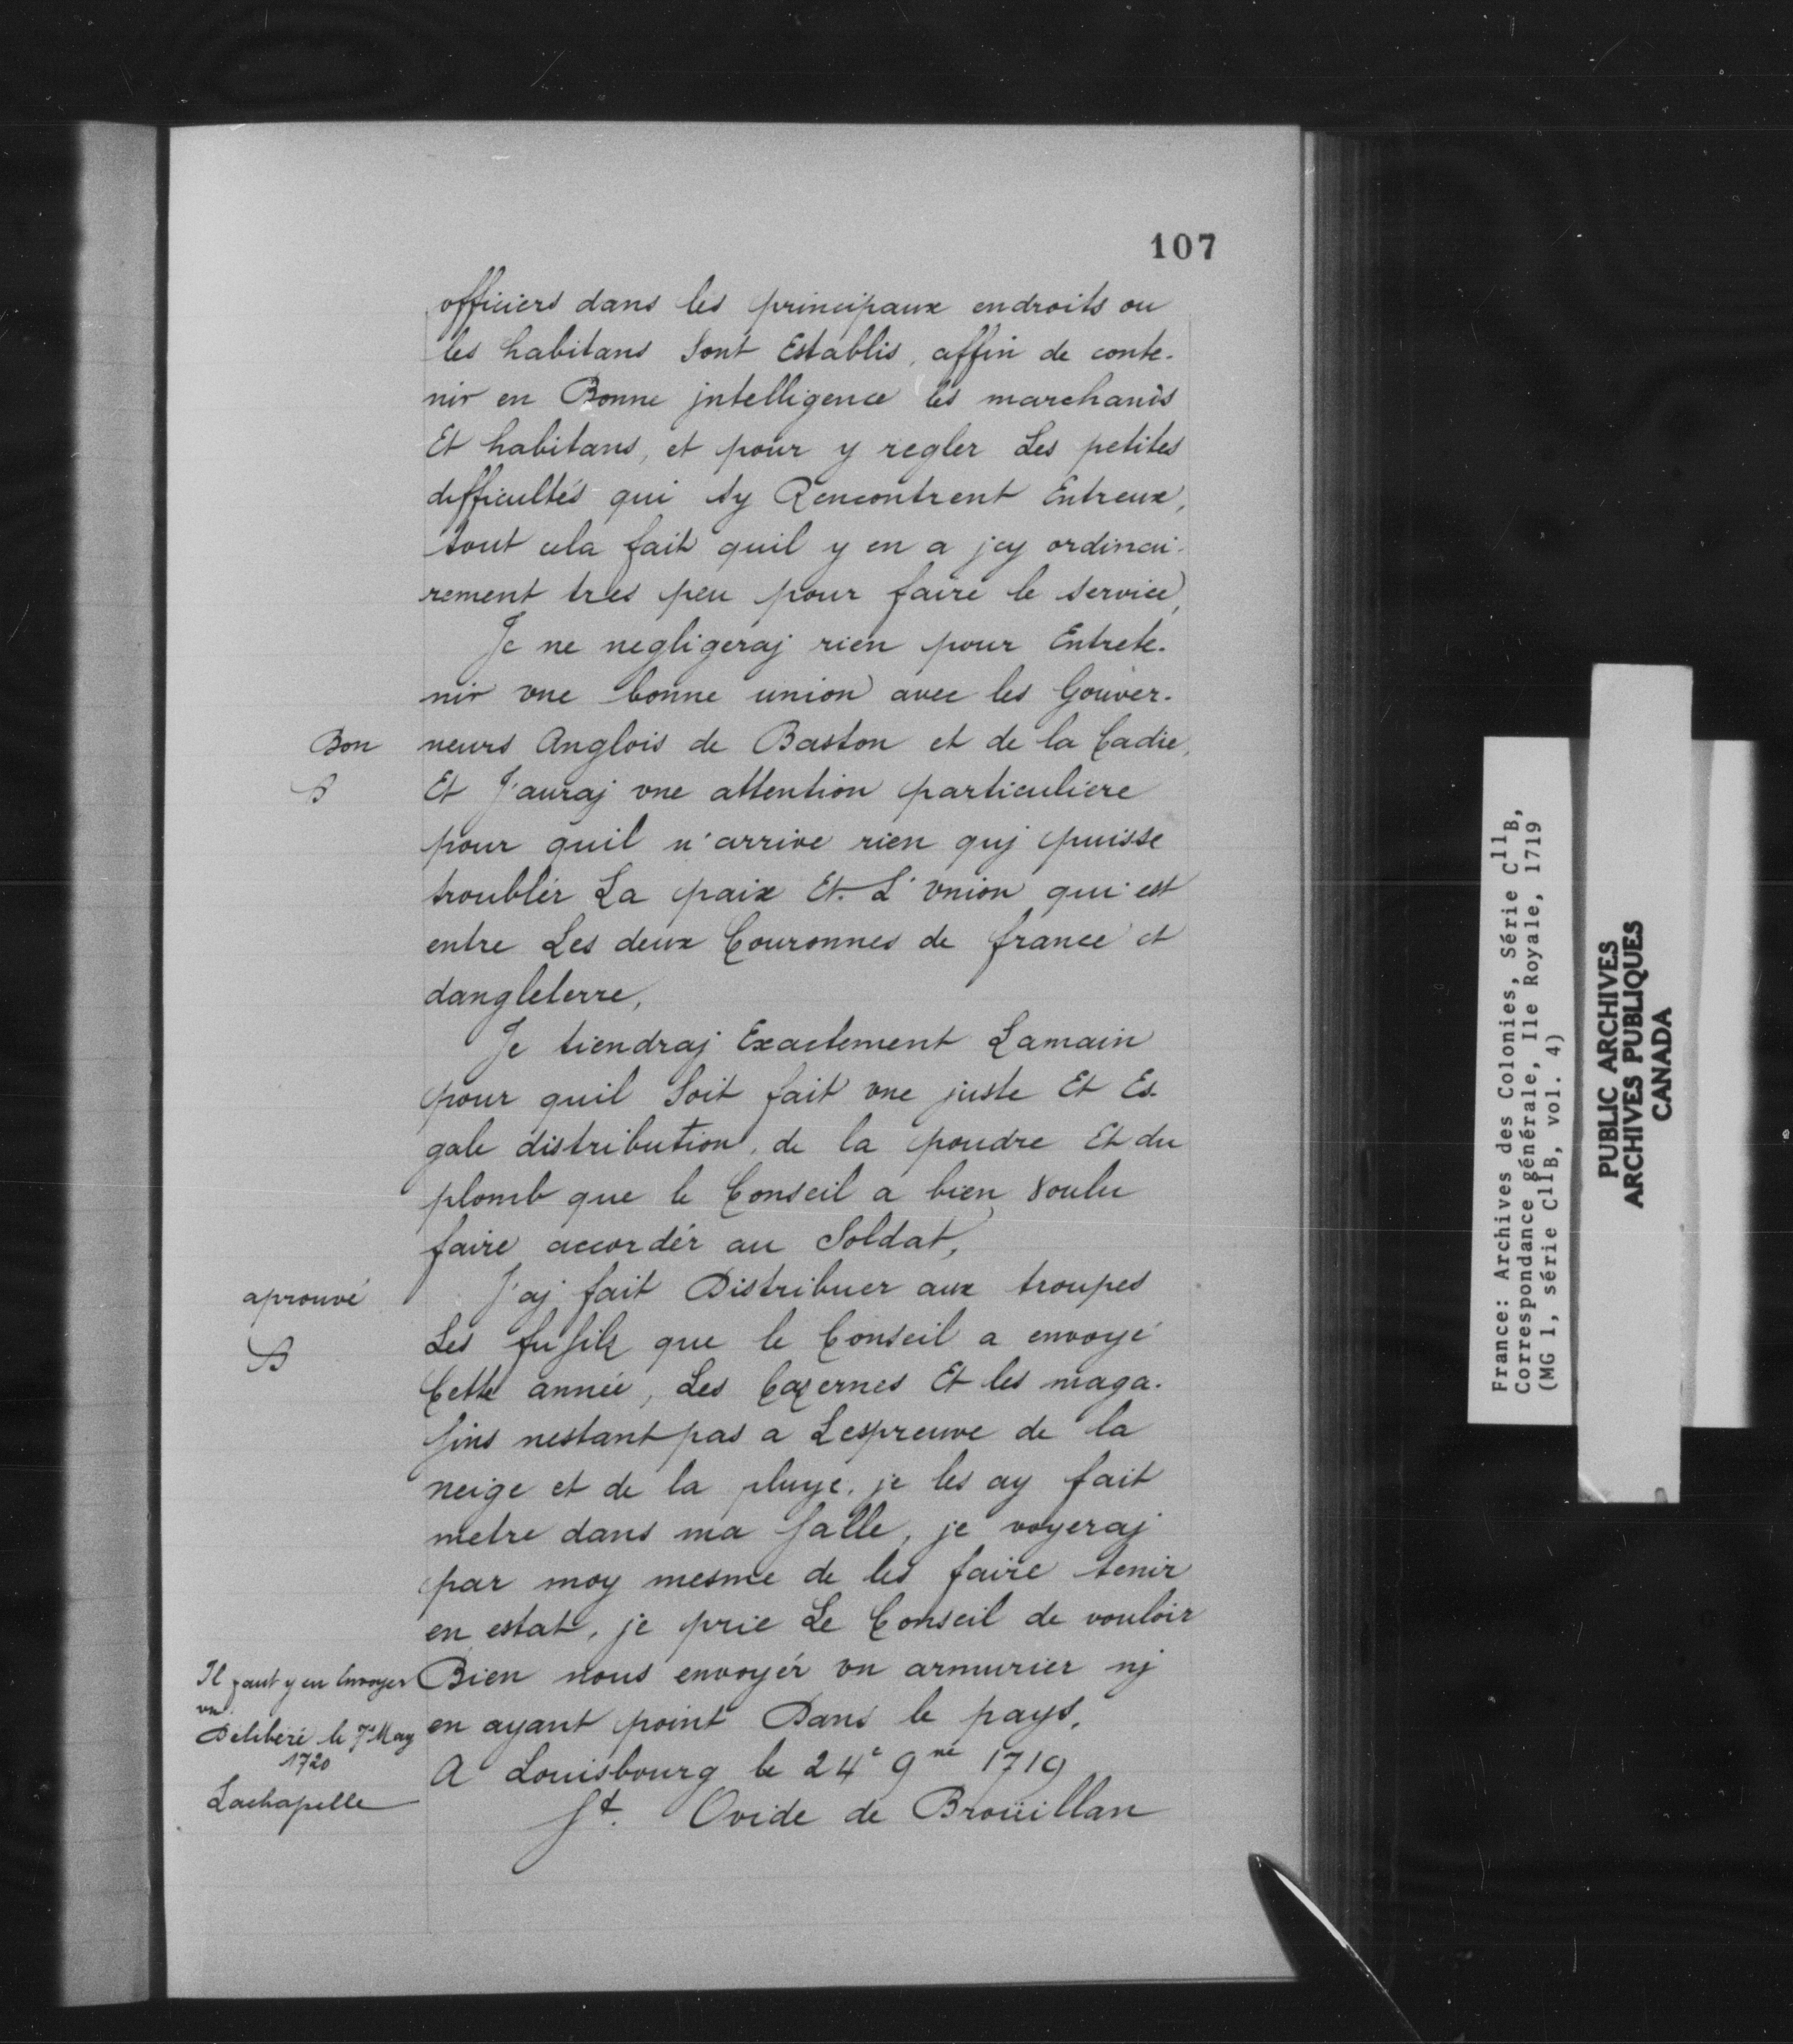 107
officiers dans les principaux endroits ou
les habitans sont Establis, affin de conte-
nir en Bonne jntelligence les marchands
Et habitans, et pour y regler Les petites
difficultés qui sy Rencontrent Entreux,
tout cela fait quil y en a jcy ordinai-
rement tres peu pour faire le service,
Je ne negligeraj rien pour Entrete-
nir vne bonne union avec les Gouver-
Bon
neurs Anglois de Baston et de la Cadie,
B
Et J'auraj vne attention particuliere
pour quil n'arrive rien quj puisse
troublér La paix Et L'vnion qui est
entre Les deux Couronnes de france et
dangleterre,
Je tiendraj Exactement Lamain
pour quil Soit fait vne juste Et Es-
gale distribution, de la poudre Et du
plomb que le Conseil a bien voulu
faire accordér au Soldat,
aprouvé
J'aj fait Distribuer aux troupes
B
Les fusilz que le Conseil a envoyé
Cette année, Les Cazernes Et les maga-
sins nestant pas a Lespreuve de la
neige et de la pluye, je les ay fait
metre dans ma salle, je voyeraj
par moy mesme de les faire tenir
en estat, je prie Le Conseil de vouloir
Il faut y en Envoyer
vn
Bien nous envoyér vn armurier nj
Délibéré le 7e May
1720
en ayant point Dans le pays,
A Louisbourg le 24e 9re 1719
Lachapelle
St. Ovide de Broüillan
France: Archives des Colonies, Série C11B,
Correspondance générale, Ile Royale, 1719
(MG 1, série C11B, vol. 4)
PUBLIC ARCHIVES
ARCHIVES PUBLIQUES
CANADA